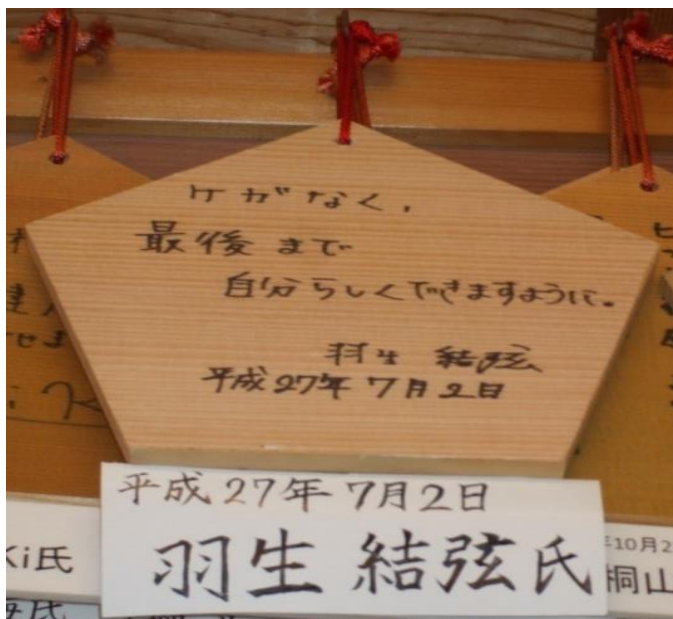 ケガなく、
最後まで
自分らしくできますように。
羽生 結弦
平成27年7月2日
平成27年7月2日
羽生 結弦氏
Ki氏
年10月2
桐山